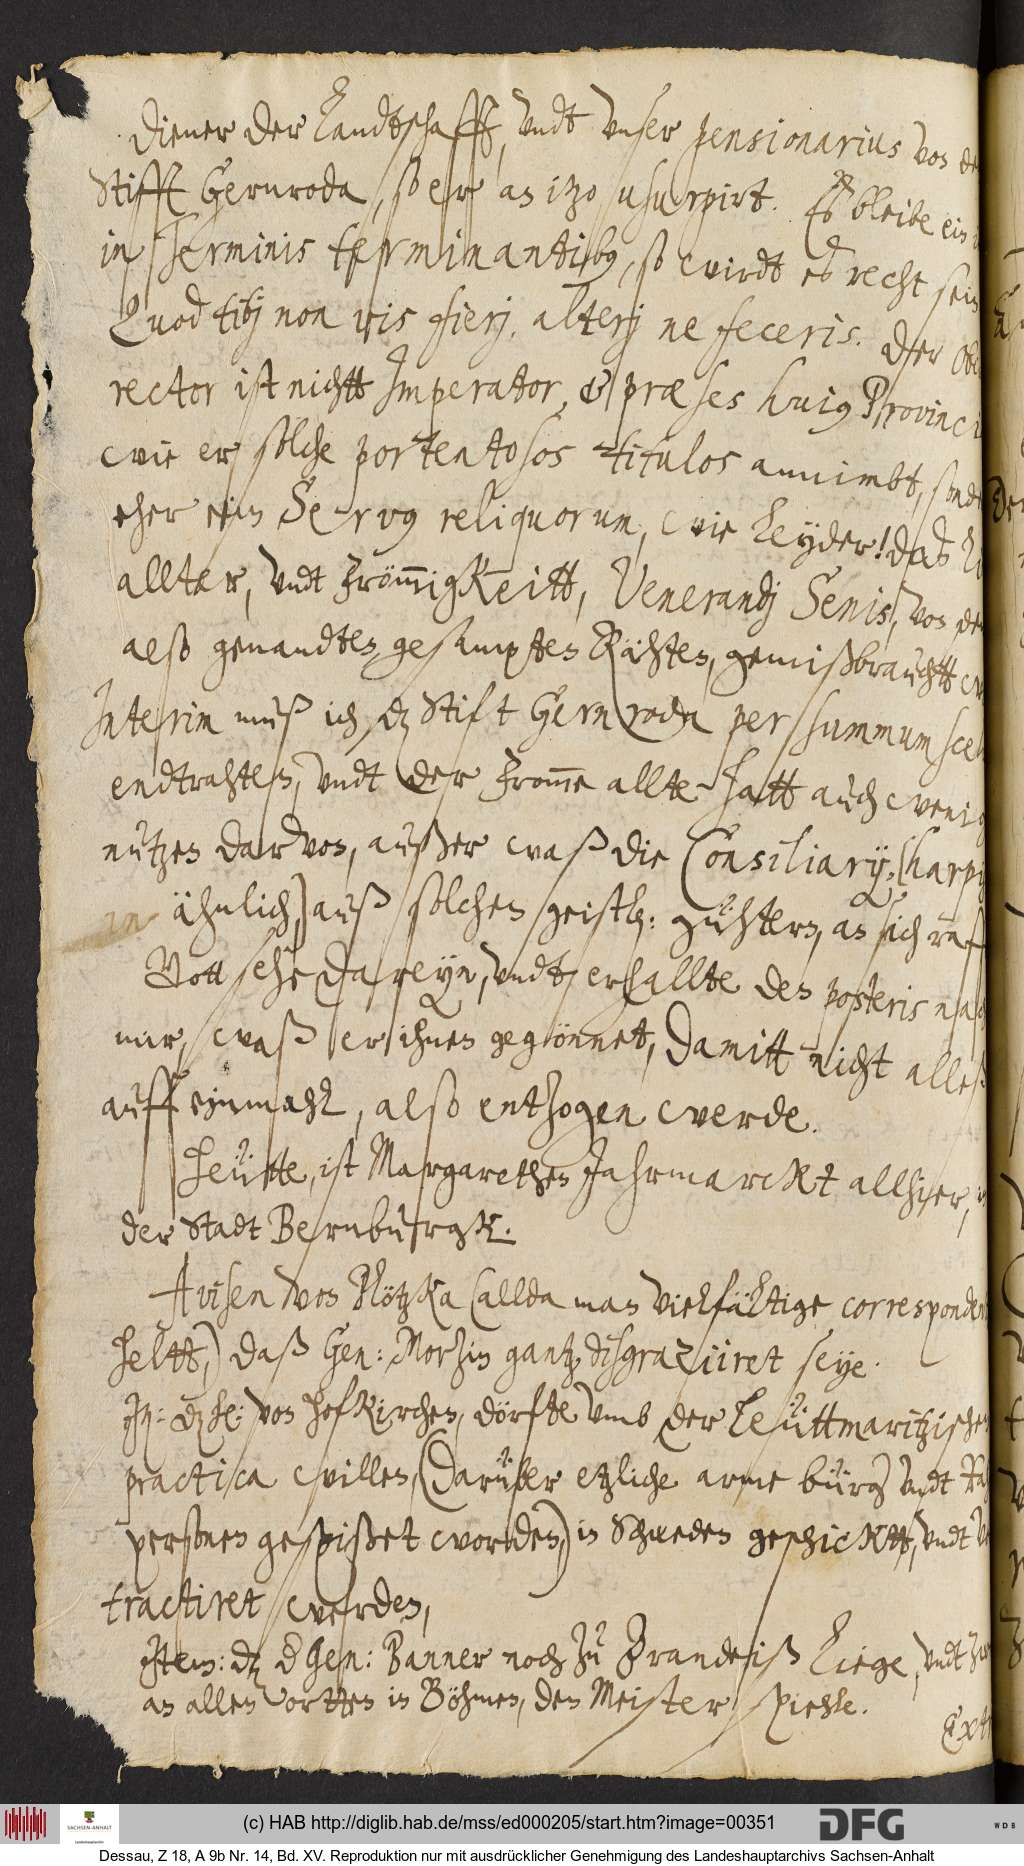 diener der Landtschafft, vndt vnser pensionarius von de
Stifft Gernroda, so er an itzo usurpirt. Es bleibe ein
in Terminis terminantibus, so wirdt es recht sein
Quod tibj non vis fierj, alterj ne feceris. Der Obe
rector ist nichtt Imperator, & præses huius Provinci
wie er solche portentosos titulos annimbt, sonde
eher ein Servus reliquorum, wie leyder! das
allter, vndt frömmigkeitt, Venerandj Senis, von de
also genandten gesampten Rähten, gemißbrauchtt
Interim muß ich dz Stift Gernroda per summum scel
endtrahten, vndt der fromme allte hatt auch wenig
nutzen darvon, außer waß die Consiliarij, (harpij
ähnlich) auß solchen geistl: gühtern, an sich raf
Gott sehe dareyn, vndt erhallte den posteris nach
mir, waß er ihnen gegönnet, damitt nicht alles
auff einmahl, also entzogen werde.
Heütte, ist Margarethen Jahrmarckt allhier,
der Stadt Bernburgk.
Avisen von Plötzka (allda man vielfältige corresponden
heltt,) daß Gen: Morzin gantz disgraziiret seye.
It: dz He: von Hofkirchen, dörfte vmb der Leüttmaritzischen
practica willen, (darüber etzliche arme bürg vndt Rah
personen gespißet worden,) in Schweden geschicktt, vndt
tractiret werden,
Item: dz d Gen: Banner noch zu Brandeiß liege, vndt
an allen ortten in Böhmen, den Meister spiehle.
Ext
(c) HAB http://diglib.hab.de/mss/ed000205/start.htm?image=00351
SACHSEN-ANHALT
DFG
WDB
Dessau, Z 18, A 9b Nr. 14, Bd. XV. Reproduktion nur mit ausdrücklicher Genehmigung des Landeshauptarchivs Sachsen-Anhalt